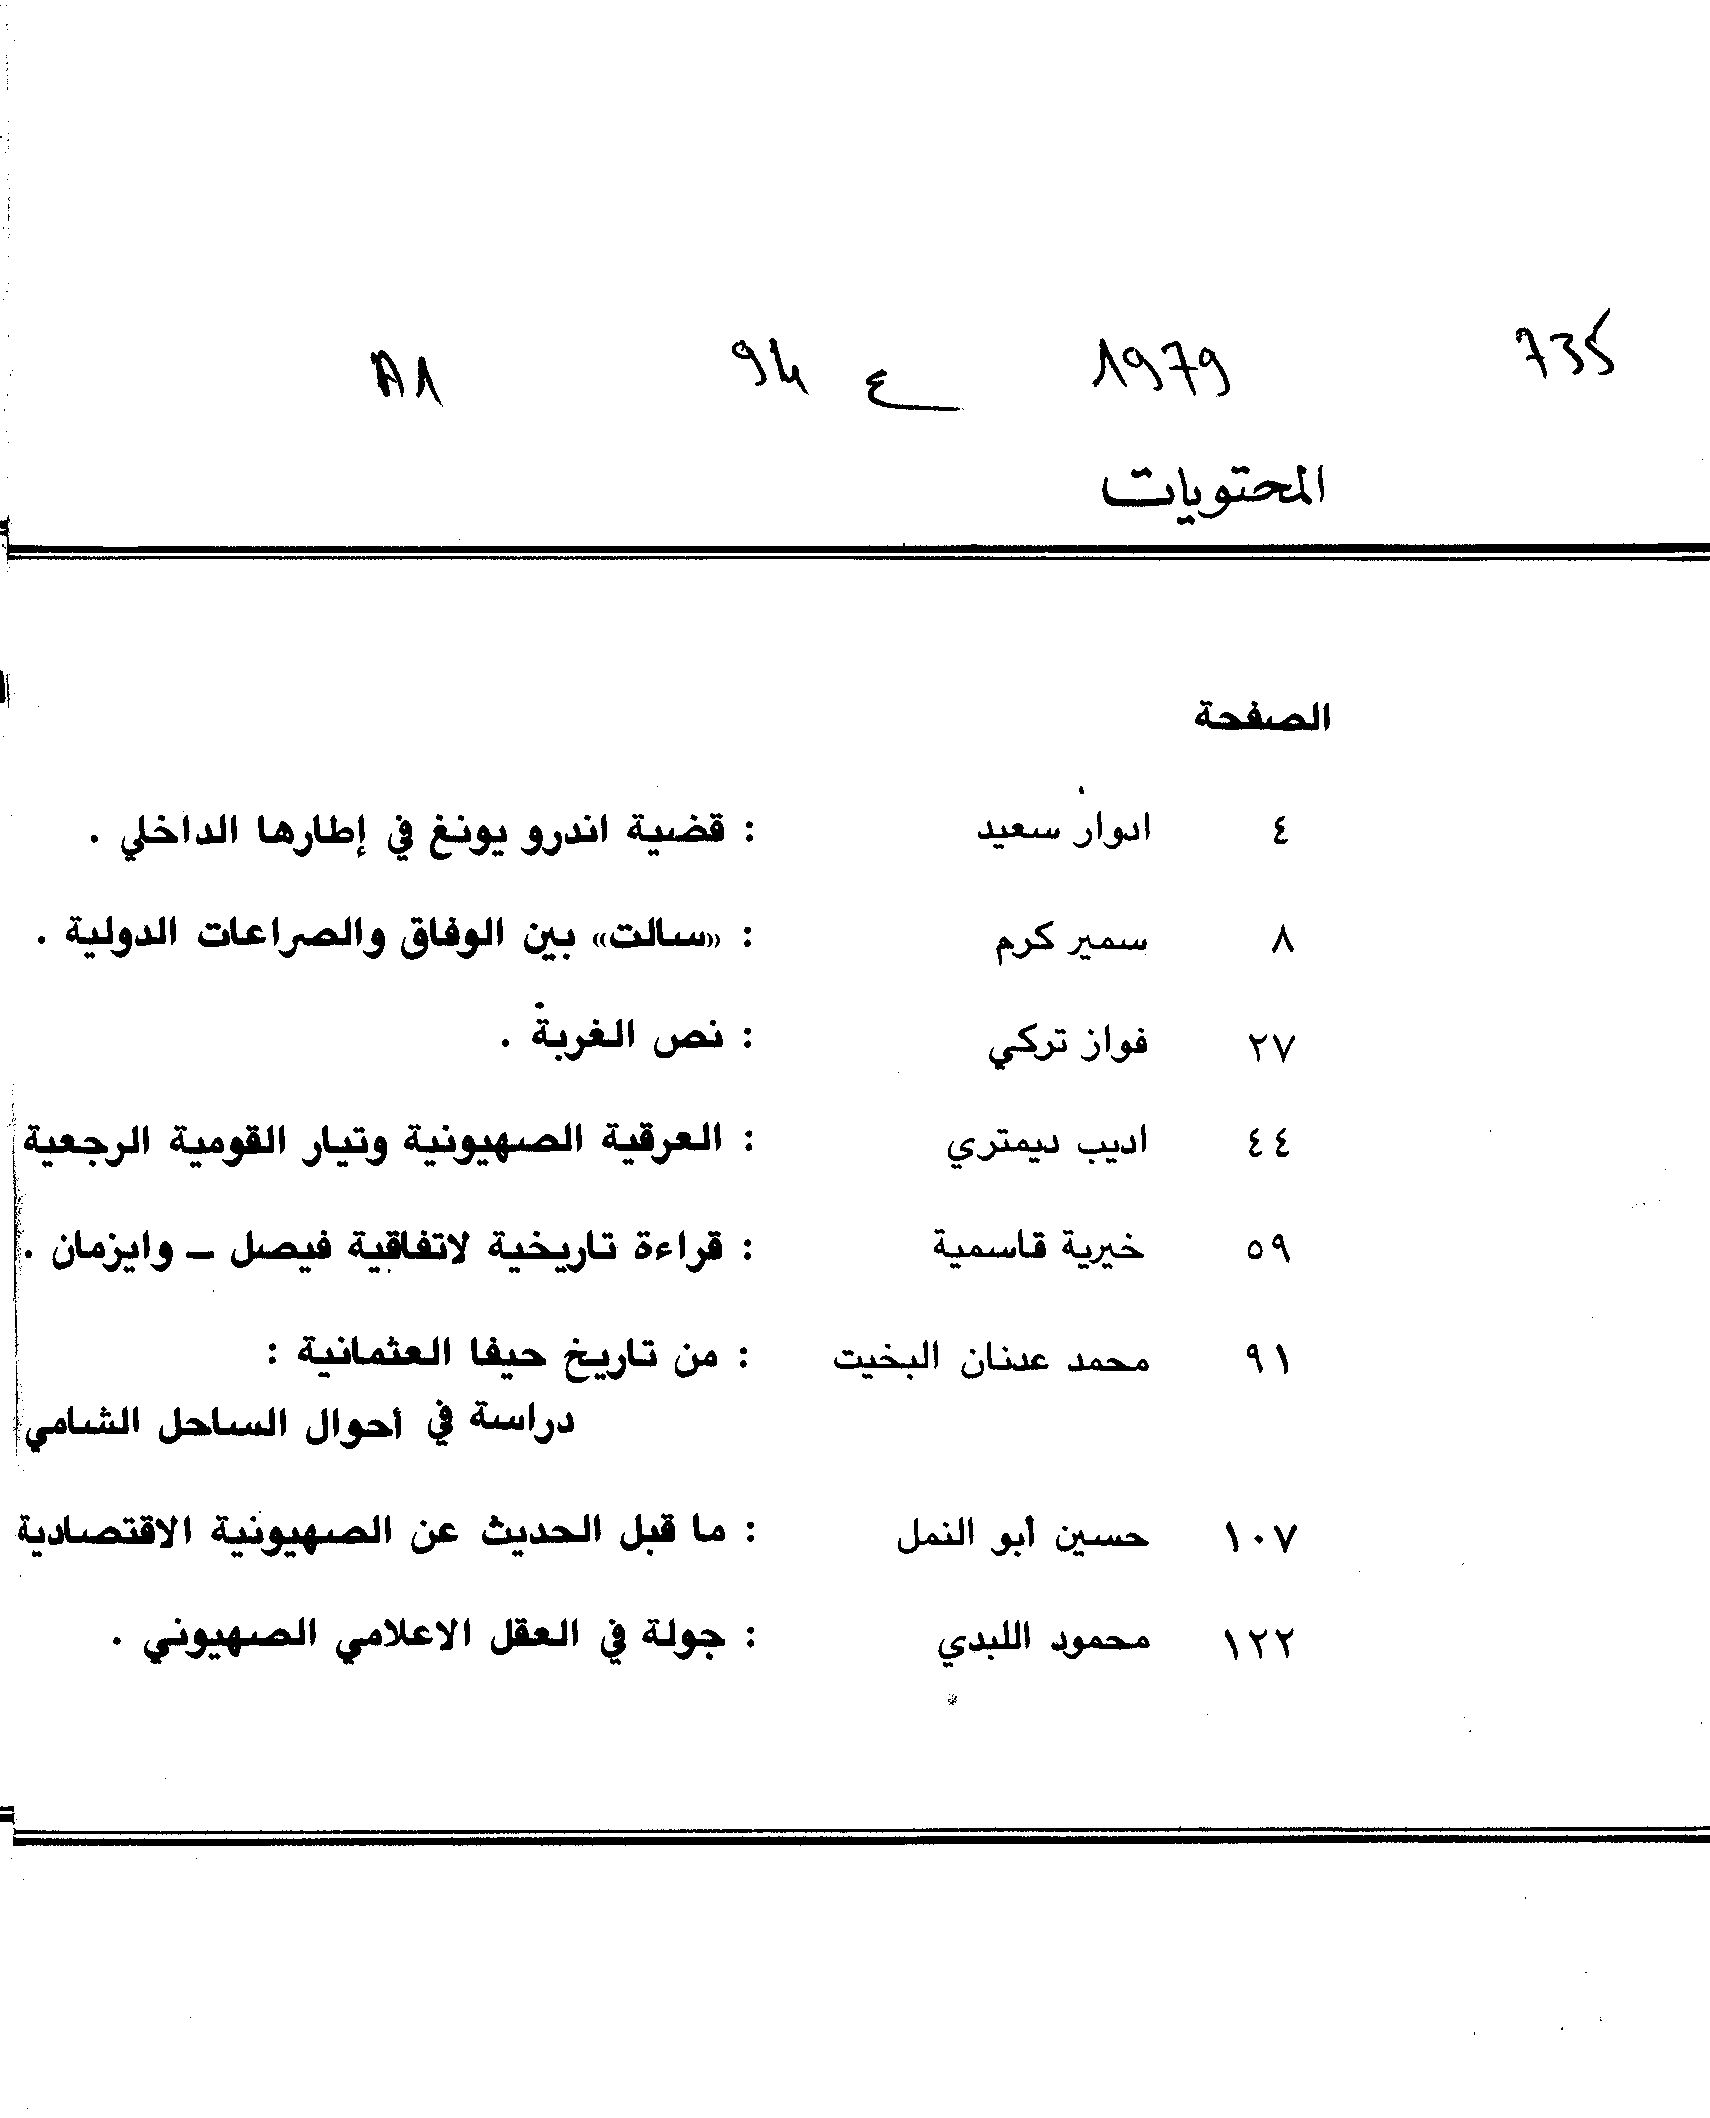 735 1979 ع 94 A1
المحتويات
الصفحة
٤ ادوار سعيد : قضية اندرو يونغ في إطارها الداخلي .
٨ سمير كرم : «سالت» بين الوفاق والصراعات الدولية .
٢٧ فواز تركي : نص الغربة .
٤٤ اديب ديمتري : العرقية الصهيونية وتيار القومية الرجعية
٥٩ خيرية قاسمية : قراءة تاريخية لاتفاقية فيصل – وايزمان .
٩١ محمد عدنان البخيت : من تاريخ حيفا العثمانية :
دراسة في أحوال الساحل الشامي
١٠٧ حسين أبو النمل : ما قبل الحديث عن الصهيونية الاقتصادية
١٢٢ محمود اللبدي : جولة في العقل الاعلامي الصهيوني .